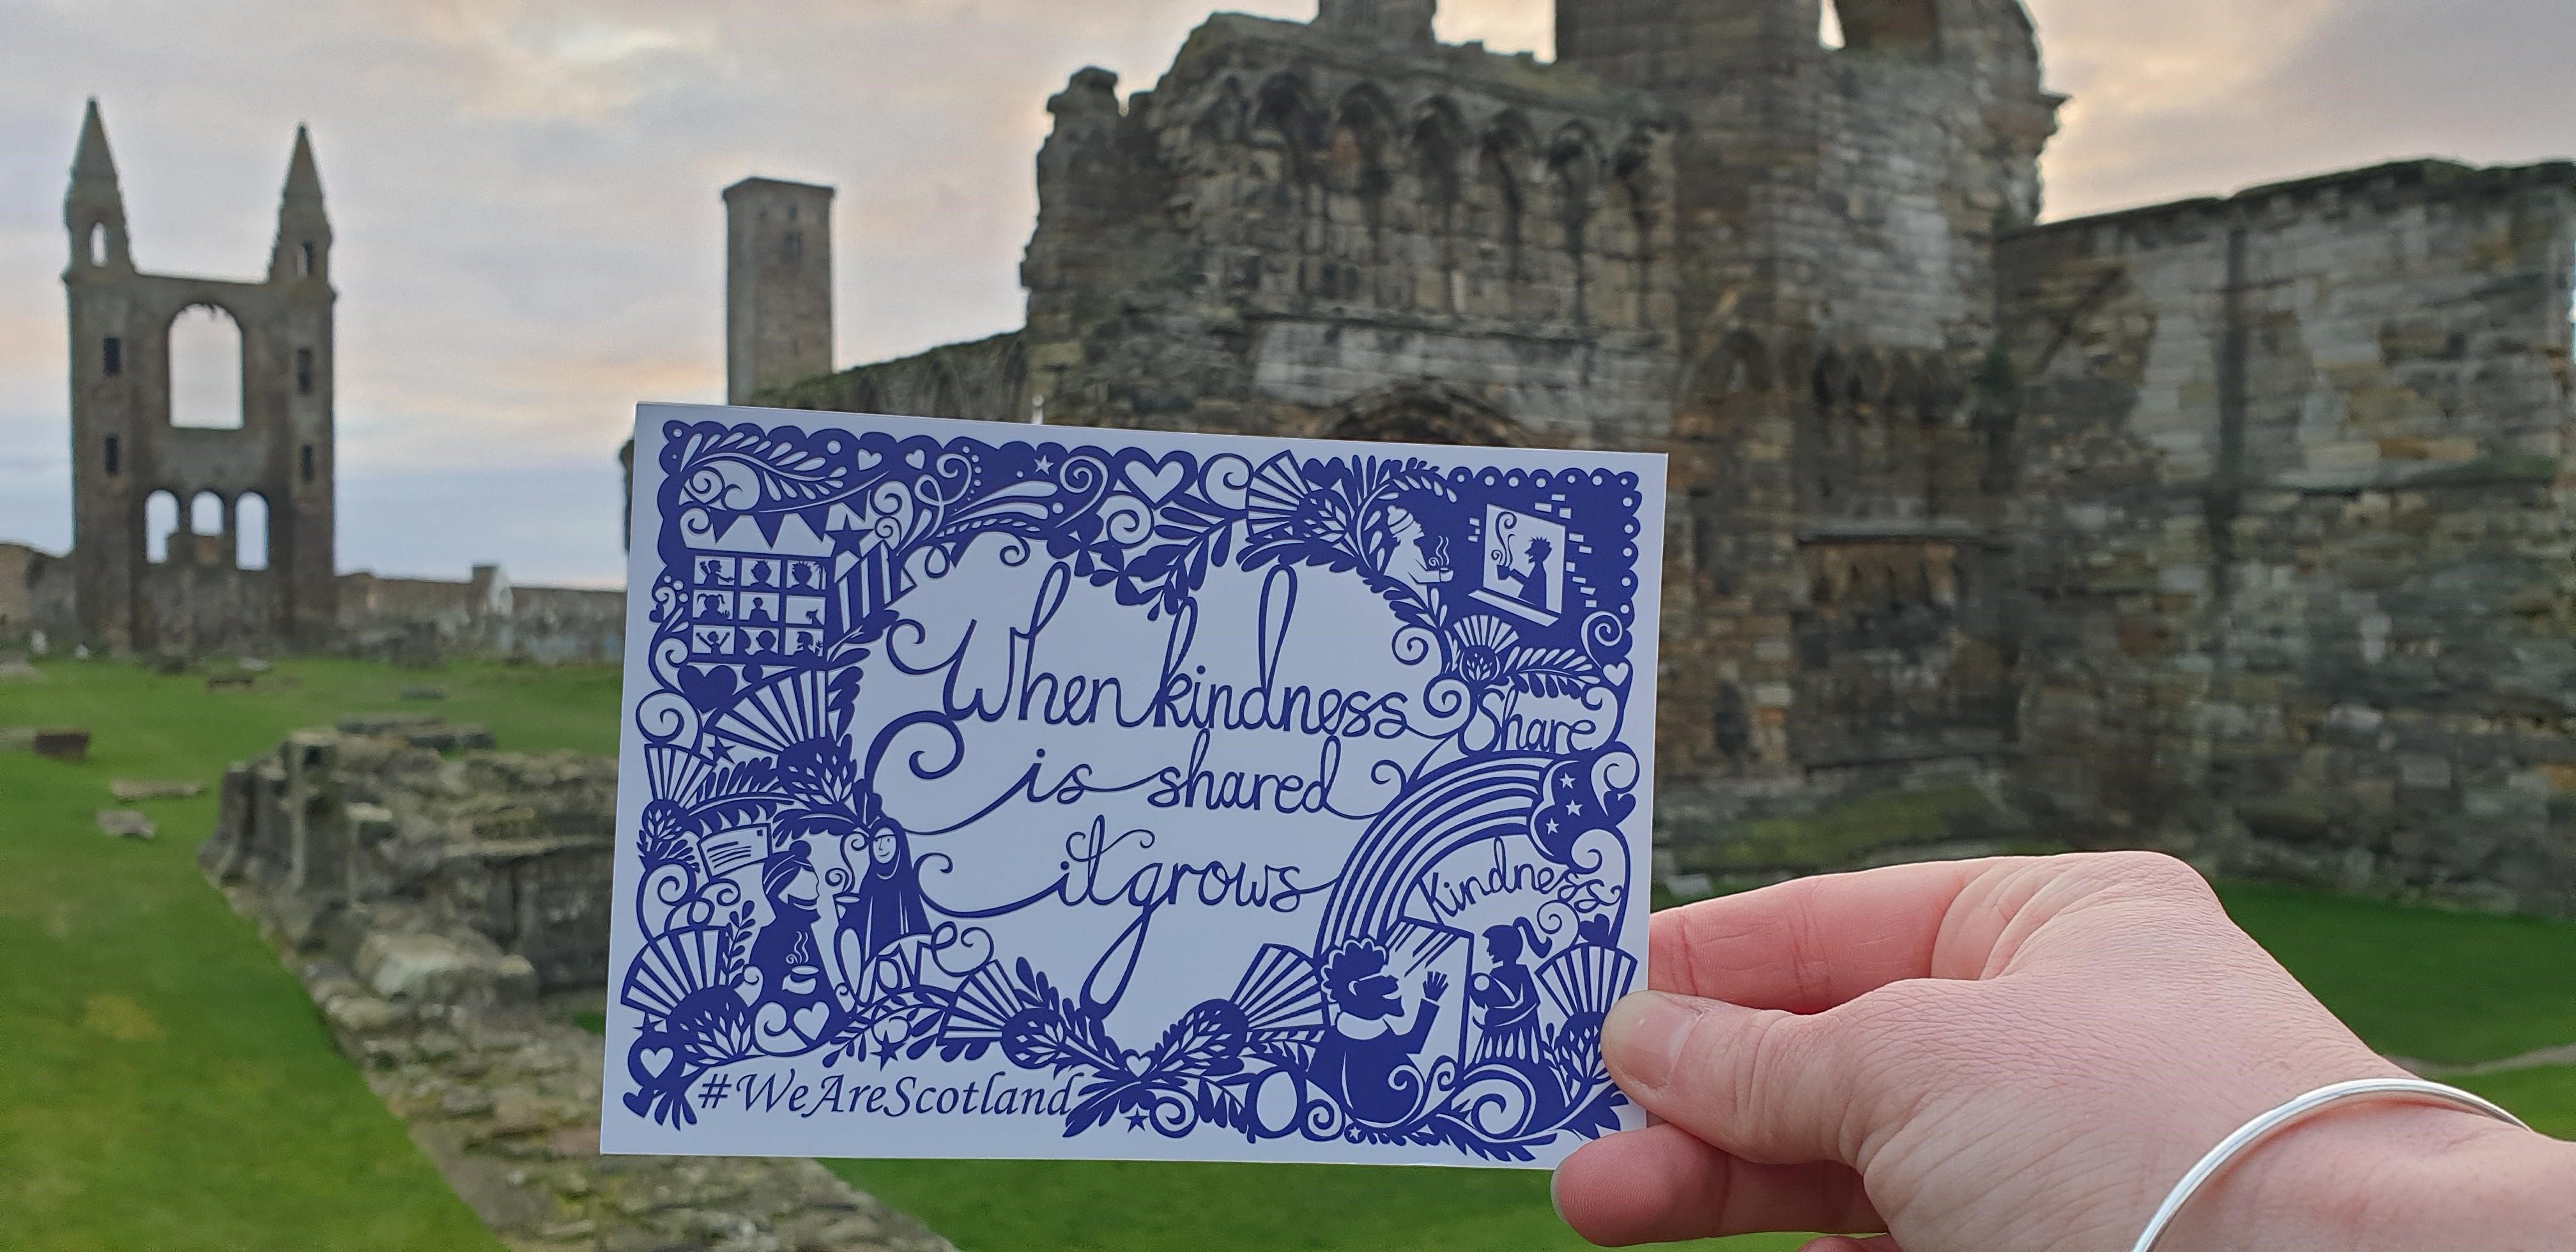 When kindness
is shared
it grows
Share
Kindness
Love
#WeAreScotland